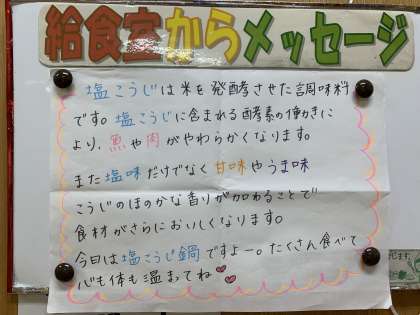 給食室からメッセージ
塩こうじは米を発酵させた調味料
です。塩こうじに含まれる酵素の働きに
より、魚や肉がやわらかくなります。
また塩味だけでなく甘味やうま味
こうじのほのかな香りが加わることで
食材がさらにおいしくなります。
今日は塩こうじ鍋ですよー。たくさん食べて
心も体も温まってね